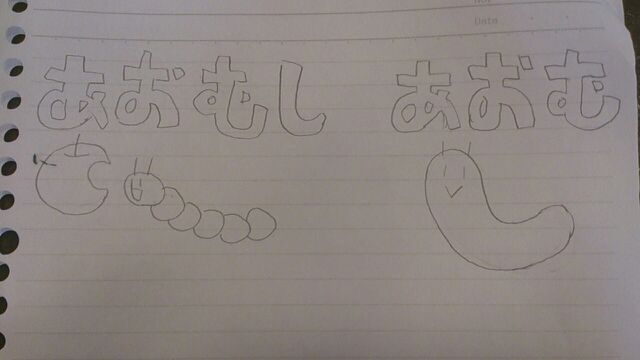 No.
Date
あおむし あおむし